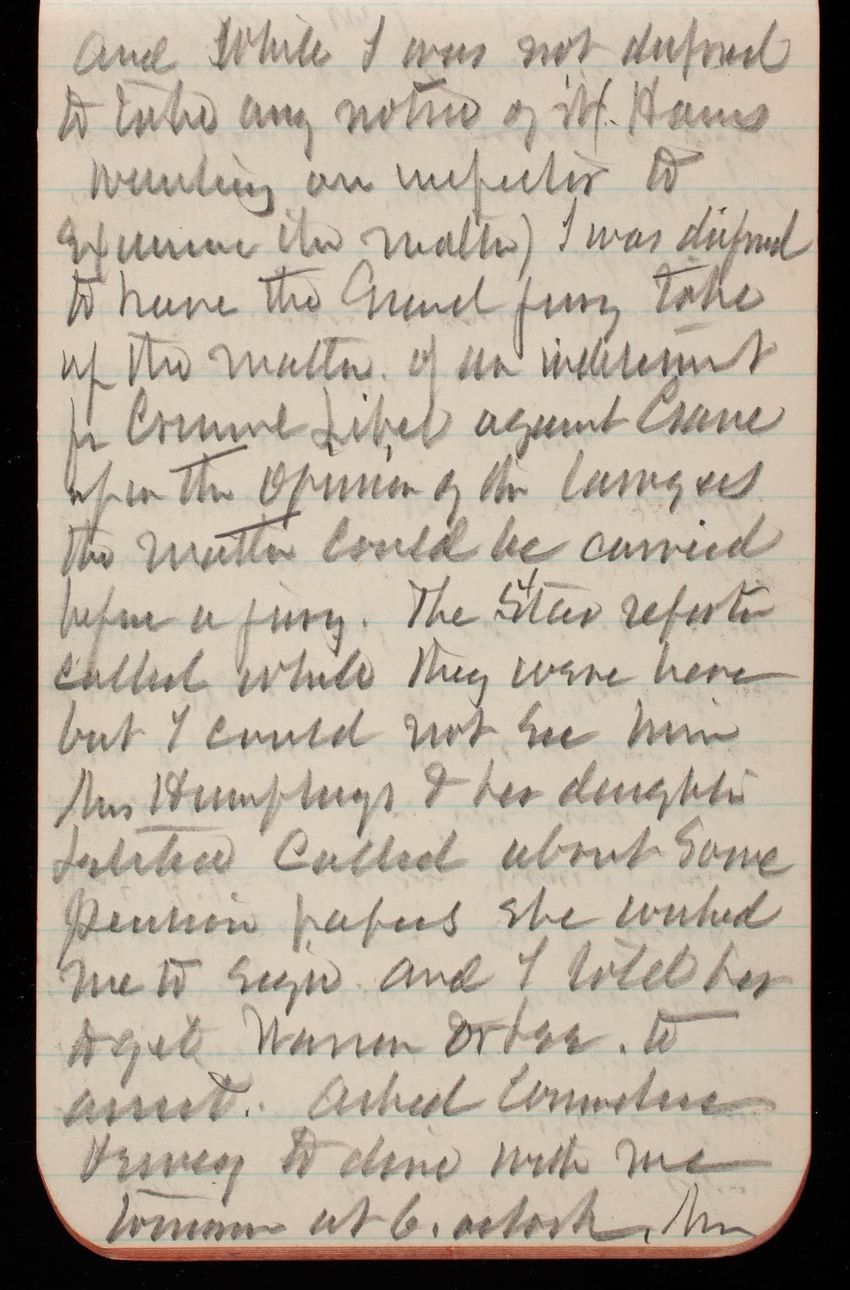 and while I was not disposed
to take any notice of it (. Harris
wanting an inspector to
Examine the matter) I was disposed
to have the Grand jury take
up the matter of an indictment
for Criminal Libel against Crane
upon the opinion of the lawyers
the matter could be carried
before a jury. The Star reporter
called while they were here
but I could not see him
Mrs Humphreys & her daughter
called about some
Pension papers she wished
me to sign and I told her
to get Warner or her. to
assist. Asked Commodore
to dine with me
tomorrow at 6. oclock. Mrs